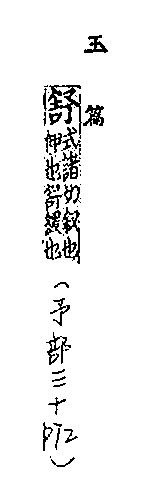 玉篇
舒
式諸切叙也
伸也舒緩也
(予部三十